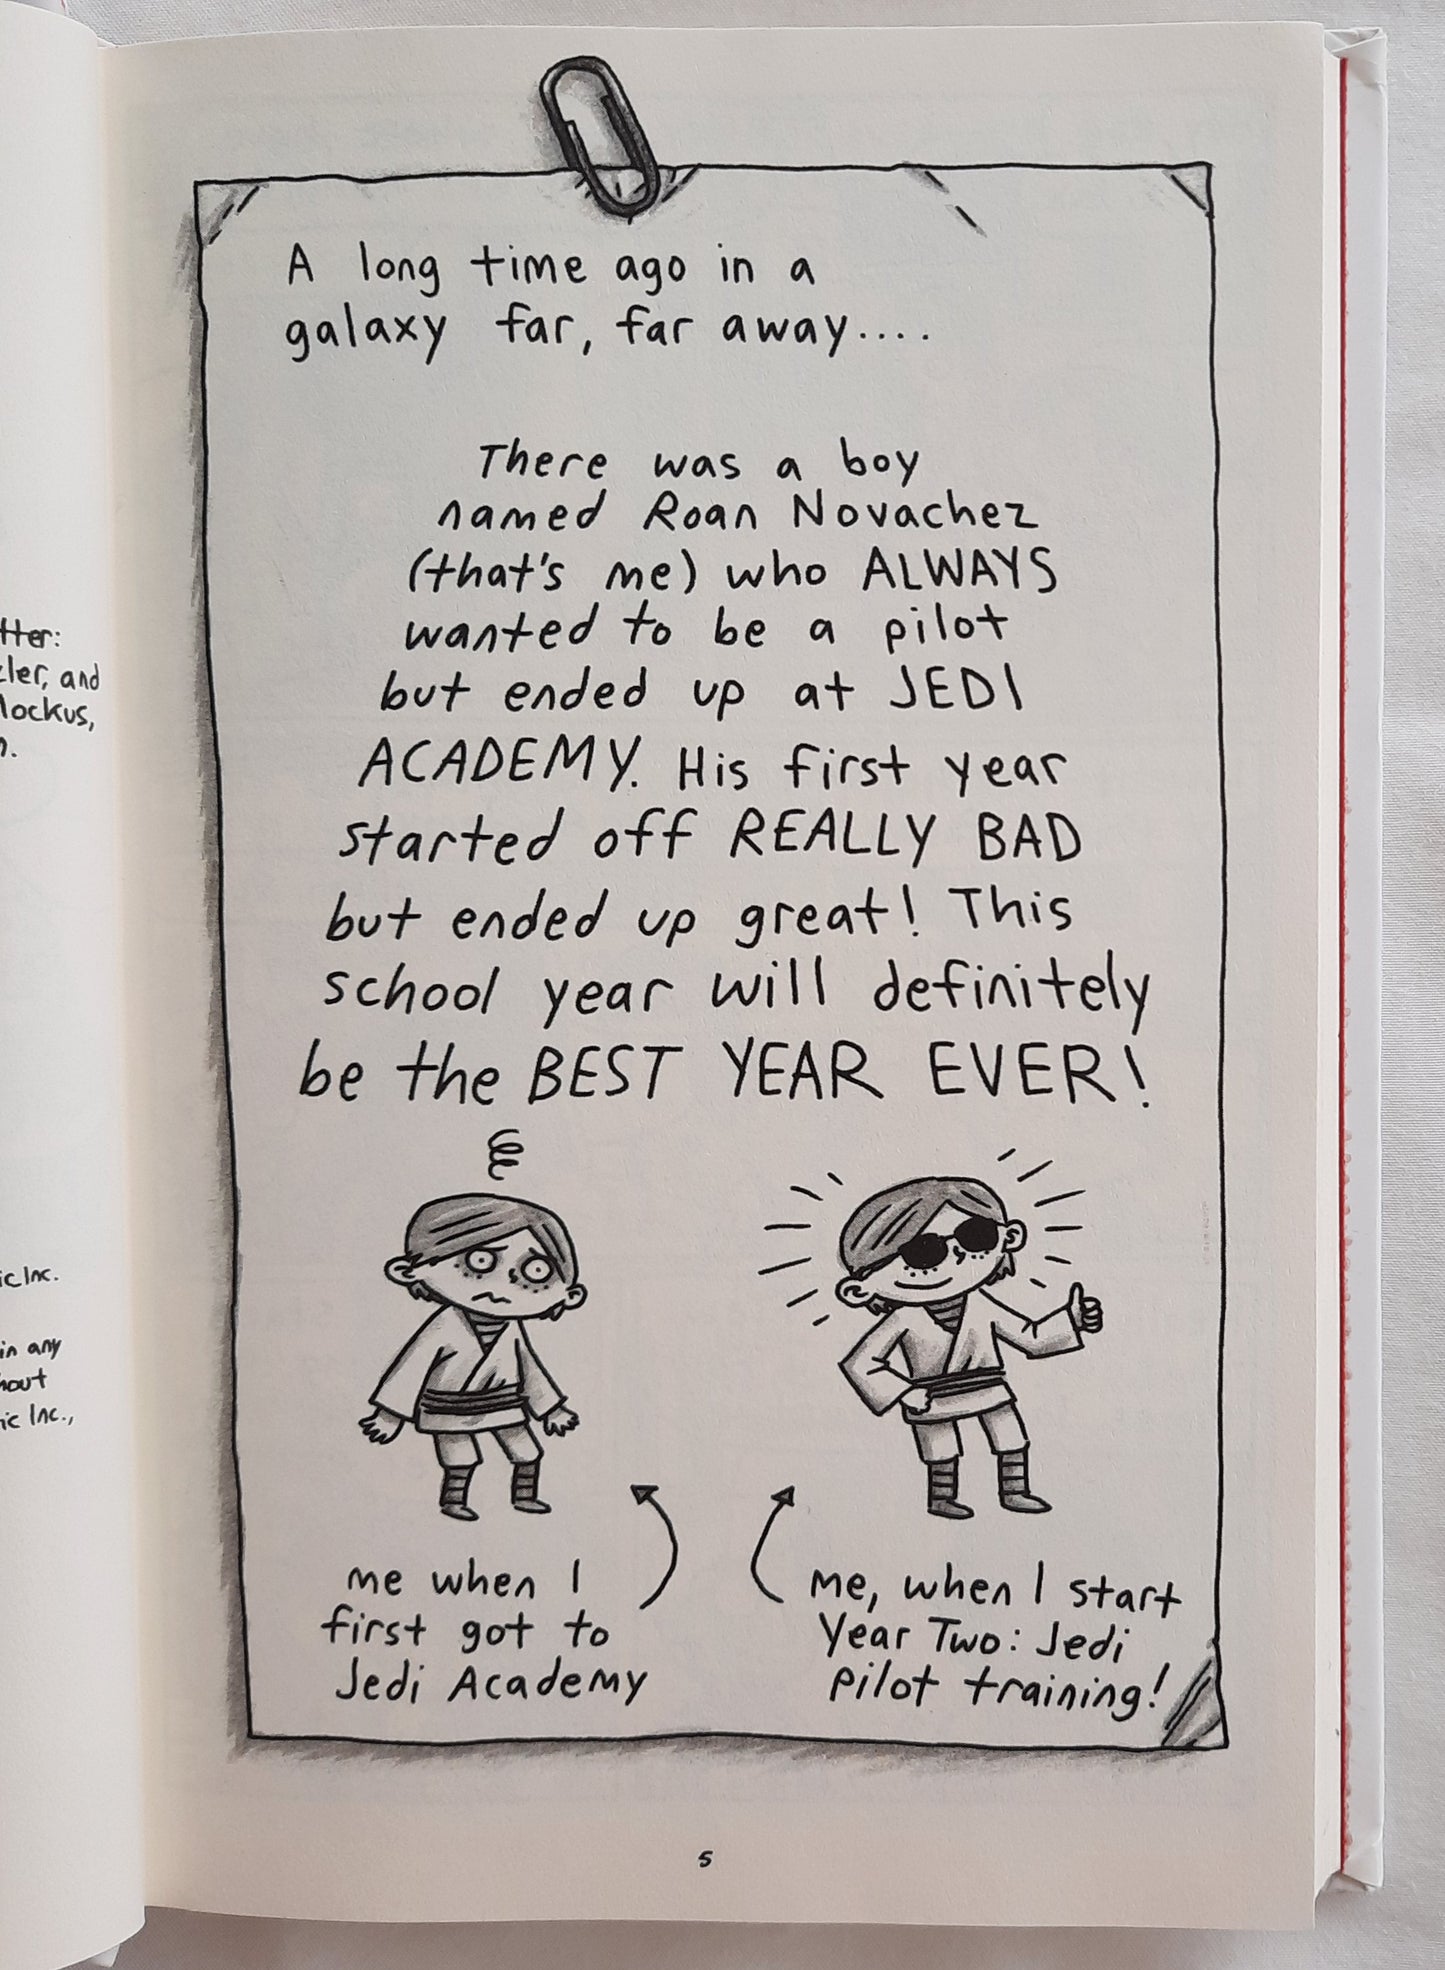 A long time ago in a
galaxy far, far away....
There was a boy
named Roan Novachez
(that's me) who ALWAYS
wanted to be a pilot
but ended up at JEDI
ACADEMY. His first year
started off REALLY BAD
but ended up great! This
school year will definitely
be the BEST YEAR EVER!
me when I
first got to
Jedi Academy
me, when I start
Year Two: Jedi
pilot training!
5
and
Inc.
in any
Inc.,